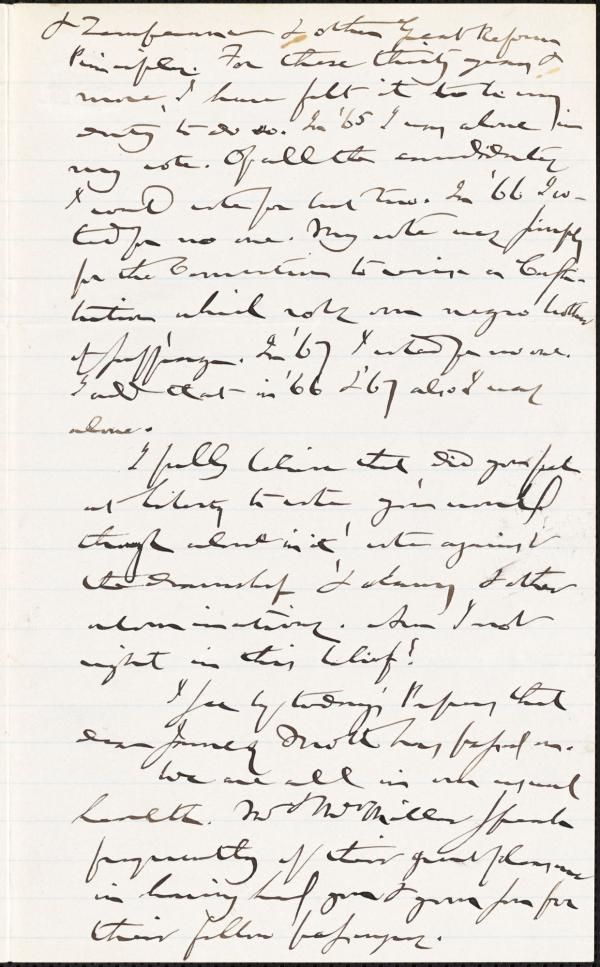 & Temperance & other Great Reform
Principles. For these thirty years &
more, I have felt it to be my
duty to do so. In '65 I was alone in
my vote. Of all the candidates
I could vote for but Two. In '66 I vo-
ted for no one. My vote was simply
for the Convention to revise a Consti-
tution which robs our negro brother
of suffrage. In '67 I voted for no one.
I add that in '66 & '67 also I was
alone.
I fully believe that did you feel
at liberty to vote you would,
though alone in it, vote against
the dramshop & slavery & other
abominations. Am I not
right in this belief?
I see by today's Papers that
dear James Mott has passed on.
We are all in our usual
health. Mr & Mrs Miller speak
frequently of their great pleasure
in having had you & your son for
their fellow passengers.